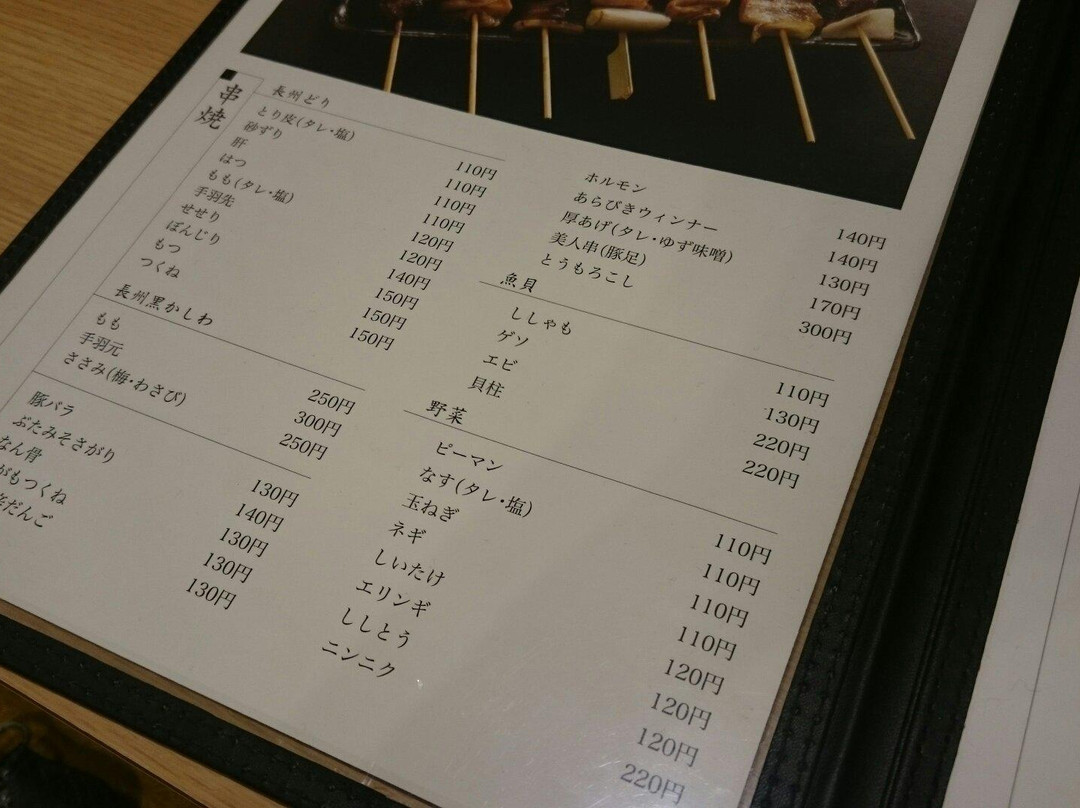 串焼
長州どり
とり皮(タレ・塩) 110円
砂ずり 110円
肝 110円
はつ 110円
もも(タレ・塩) 120円
手羽先 120円
せせり 140円
ぼんじり 150円
もつ 150円
つくね 150円
長州黒かしわ
もも 250円
手羽元 300円
ささみ(梅・わさび) 250円
豚バラ 130円
ぶたみそさがり 140円
なん骨 130円
がもつくね 130円
だんご 130円
ホルモン 140円
あらびきウィンナー 140円
厚あげ(タレ・ゆず味噌) 130円
美人串(豚足) 170円
とうもろこし 300円
魚貝
ししゃも 110円
ゲソ 130円
エビ 220円
貝柱 220円
野菜
ピーマン 110円
なす(タレ・塩) 110円
玉ねぎ 110円
ネギ 110円
しいたけ 120円
エリンギ 120円
ししとう 120円
ニンニク 220円